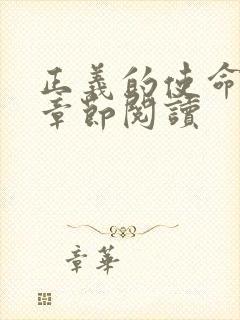 正義的使命
章節閱讀
章華